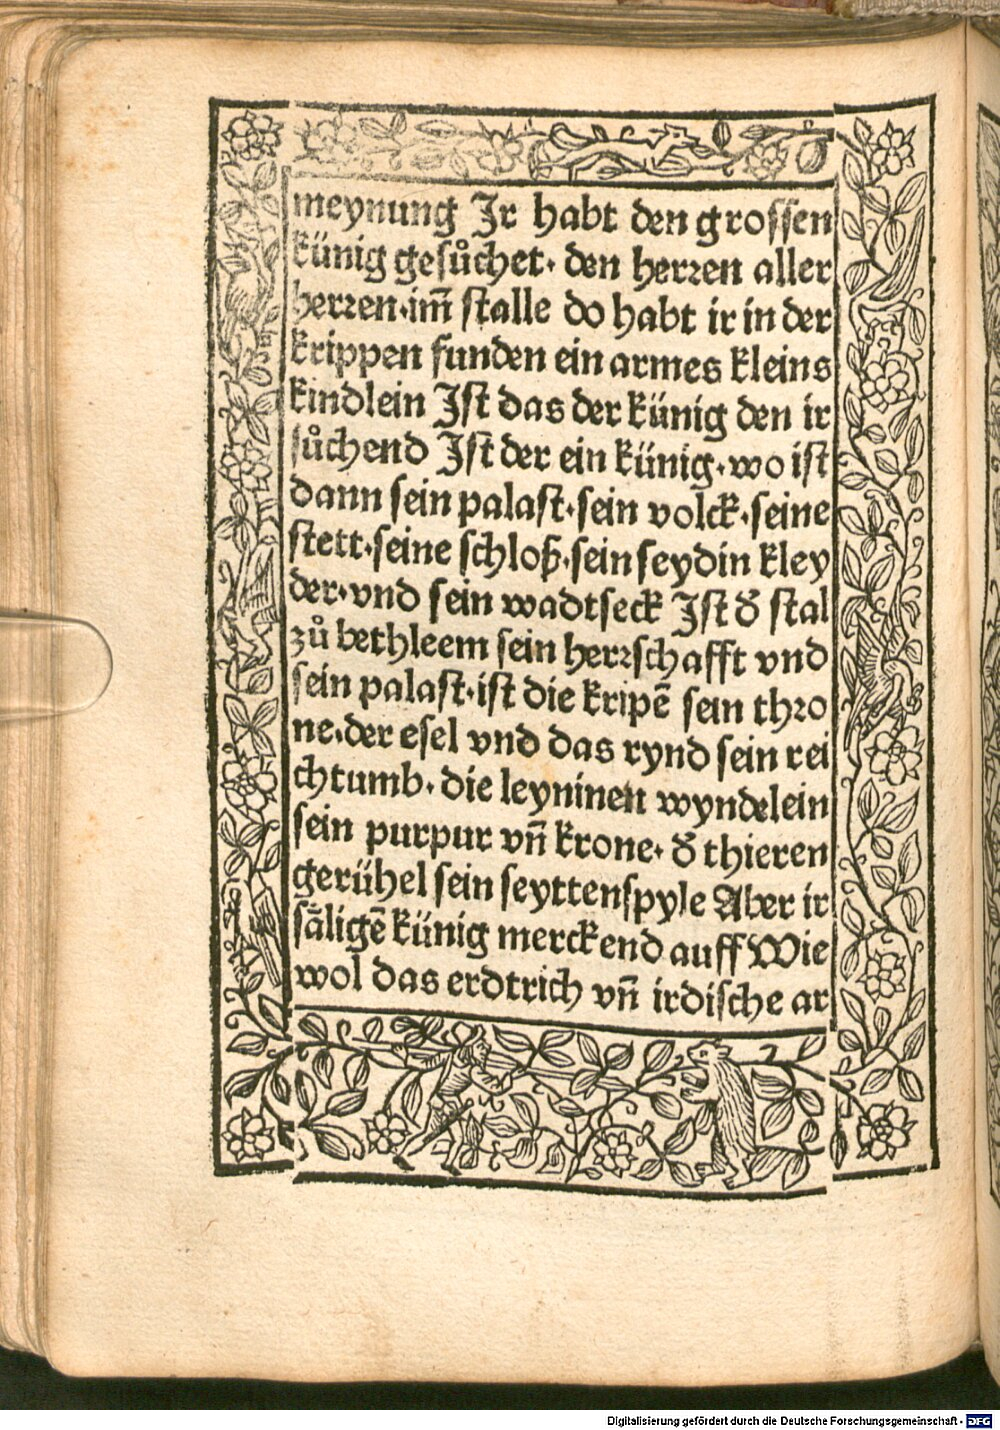 meynung Jr habt den grossen
künig gesůchet· den herꝛen aller
herꝛen·im̃ stalle do habt ir in der
krippen funden ein armes kleins
kindlein Jst das der künig den ir
sůchend Jst der ein künig·wo ist
dann sein palast·sein volck·seine
stett·seine schloß·sein seydin kley
der·vnd sein wadtseck Jst d̕ stal
zů bethleem sein herꝛschafft vnd
sein palast·ist die kripẽ sein thꝛo
ne·der esel vnd das rynd sein rei
chtumb·die leyninen wyndelein
sein purpur vñ krone·d̕ thieren
gerühel sein seyttenspyle Aber ir
sa᷉ligẽ künig merckend auff Wie
wol das erdtrich vñ irdische ar
Digitalisierung gefördert durch die Deutsche Forschungsgemeinschaft - DFG